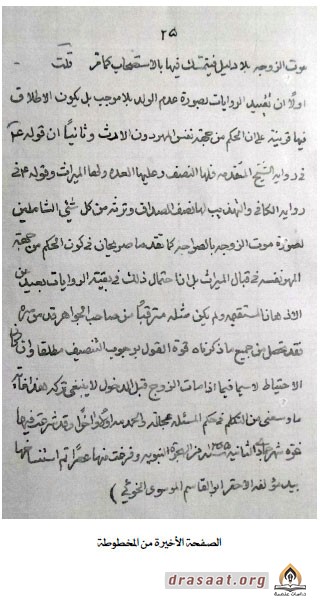 ٢٥
موت الزوجه بلا دليل فيتمسك فيها بالاستصحاب كما مر قلت
اولاً ان تقييد الروايات بصورة عدم الولد بلا موجب بل يكون الاطلاق
فيها قرينة على ان الحكم من جهة نفس المهر دون الارث و ثانياً ان قوله ع
في رواية الشيخ المتقدمه فلها النصف وعليها العده ولها الميراث وقوله ع في
رواية الكافي والتهذيب لها نصف الصداق وترثه من كل شيئ الشاملين
لصورة موت الزوجة بالصراحه كما تقدما صريحان في كون الحكم من جهة
المهر نفسه في قبال الميراث بل ان احتمال ذلك في بقيته الروايات بعيد عن
الاذهان المستقيمه ولم يكن مثله مترقباً من صاحب الجواهر قدس سره
فقد تحصل من جميع ما ذكرناه قوة القول بوجوب التنصيف مطلقا وان كان
الاحتياط لاسيما فيما اذا مات الزوج قبل الدخول لا ينبغي تركه هذا
ما وسعني من التكلم في حكم المسئله بحمد الله اولاً واخراً وقد شرعت فيها
غرة شهر الثانيه من الهجرة النبويه وفرغت منها عصراً تم استنساخها
بيد مؤلفه الاحقر ابو القاسم الموسوي الخوئي)
الصفحة الأخيرة من المخطوطة
drasaat.org
دراسات علمية